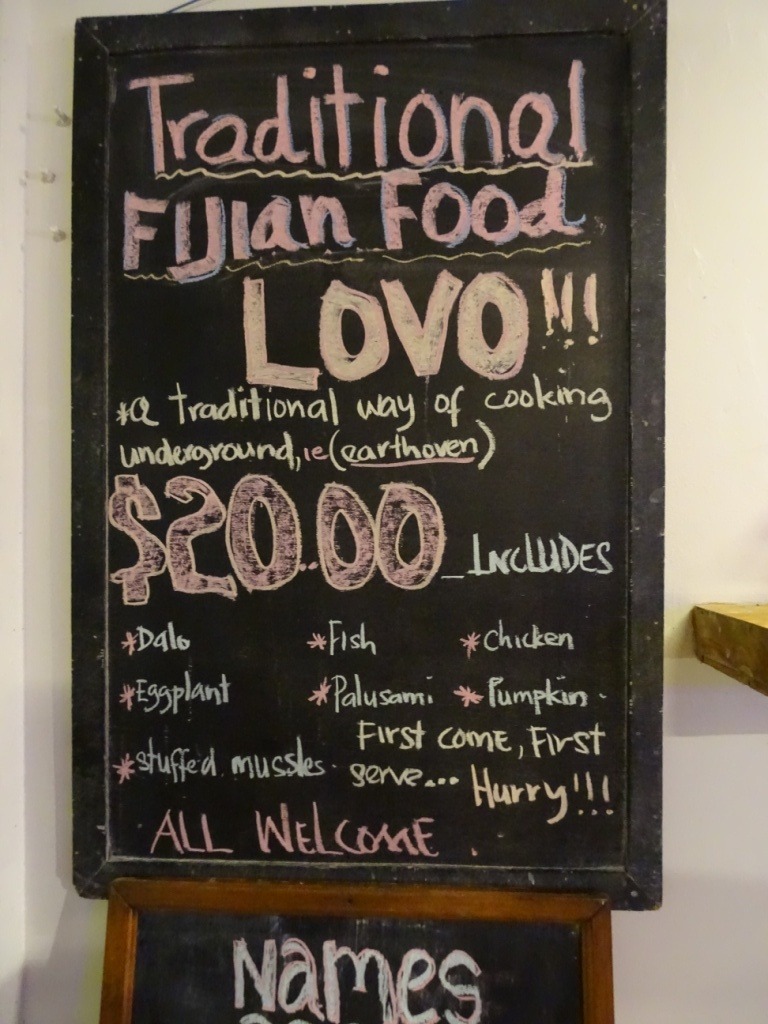 Traditional
FIJian Food
LOVO!!!
*a traditional way of cooking
underground, ie (earthoven)
$20.00 _INCLUDES
*Dalo *Fish *chicken
*Eggplant *Palusami *Pumpkin.
*stuffed mussles. First come, First
serve... Hurry!!!
ALL WELCOME.
Names